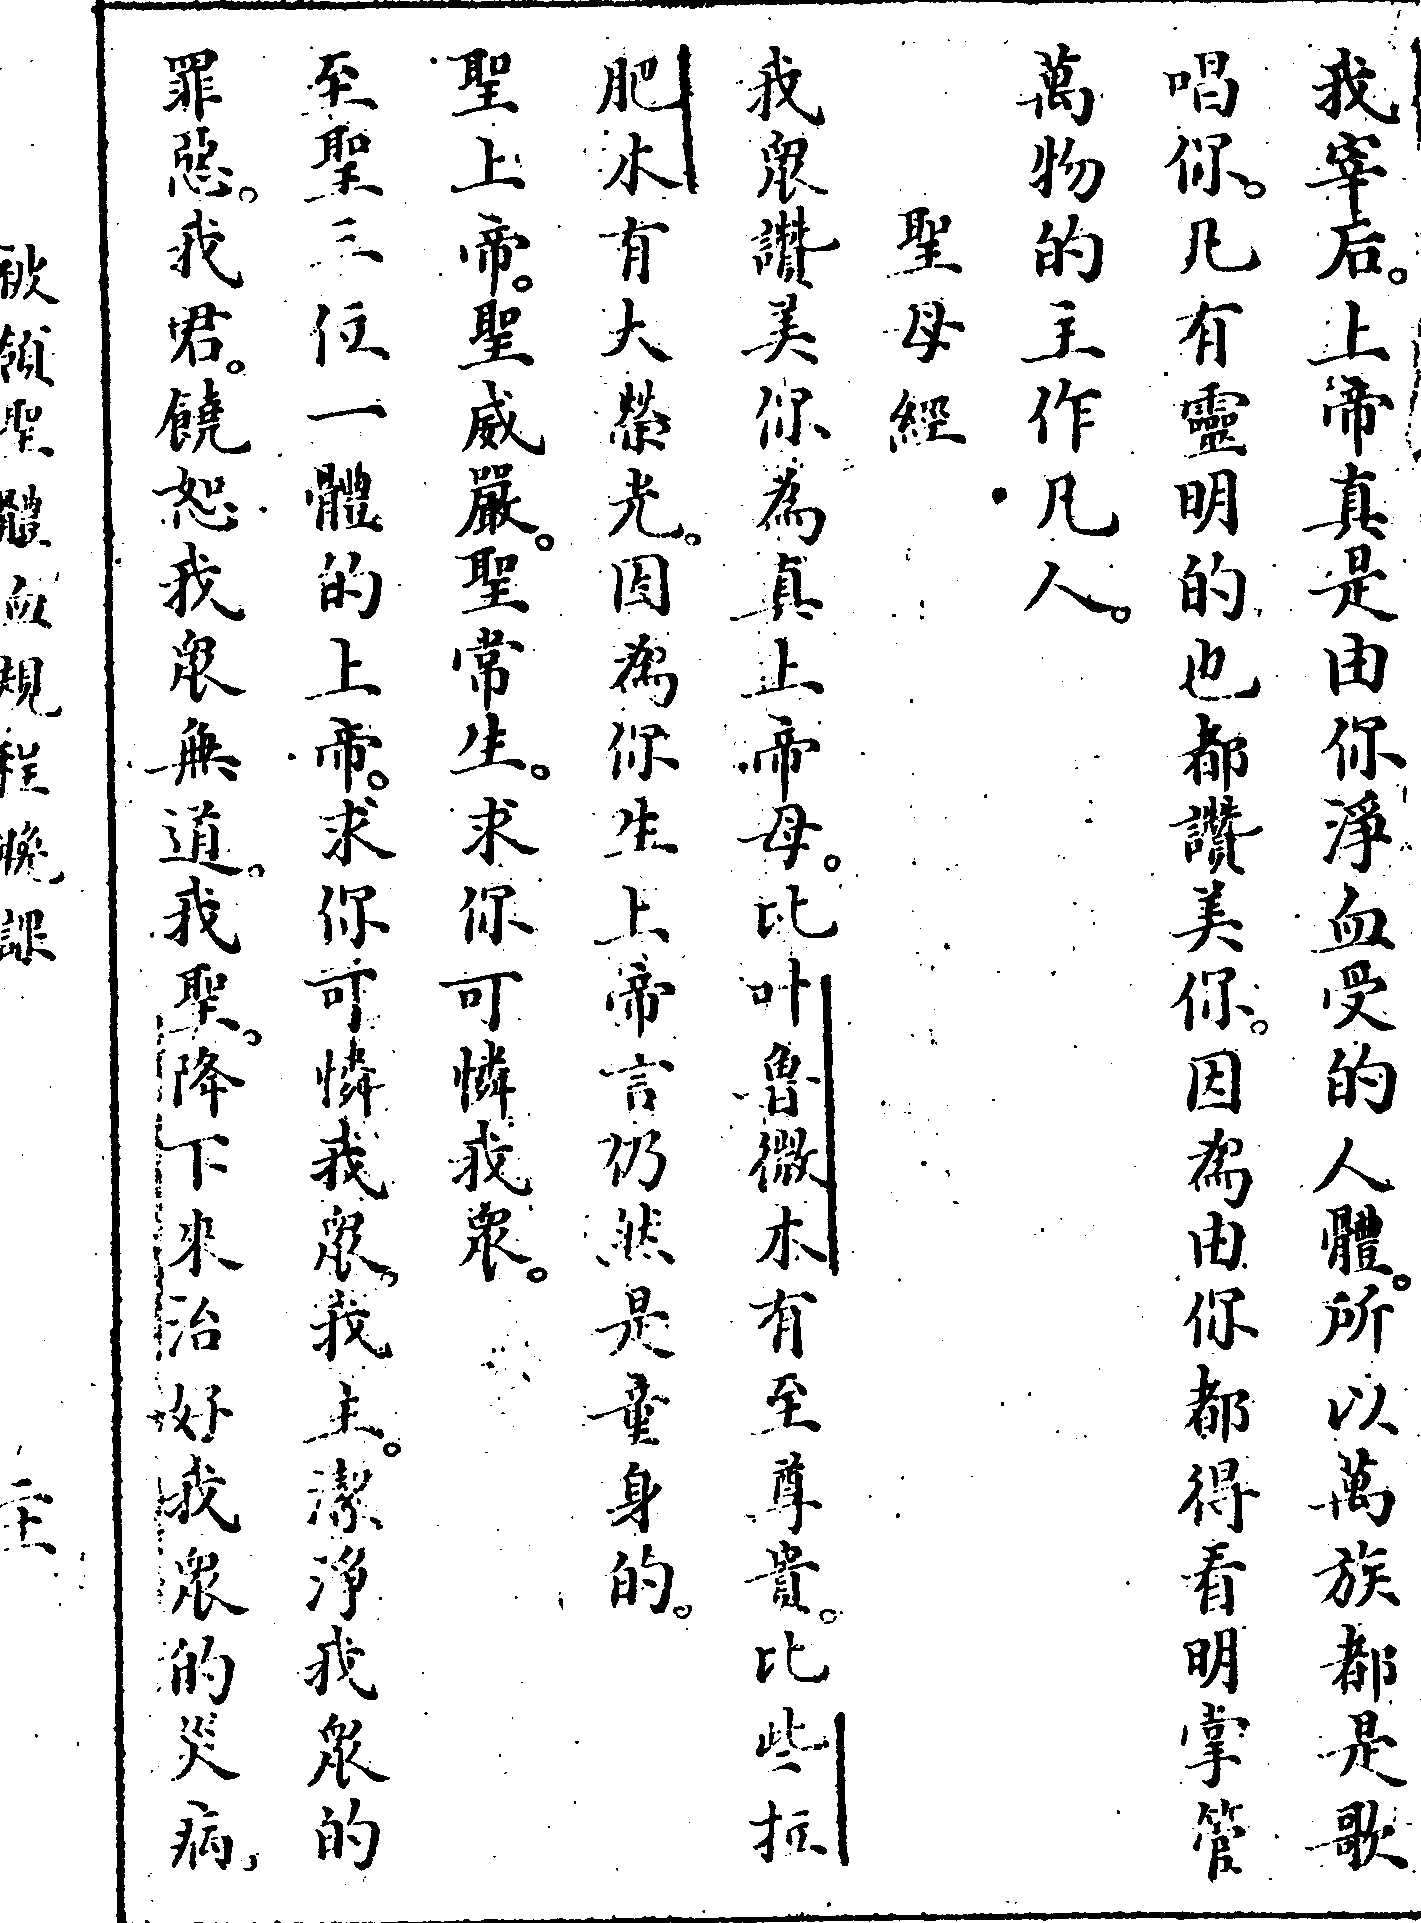 我宰后。上帝真是由你淨血受的人體。所以萬族都是歌
唱你。凡有靈明的也都讚美你。因為由你都得看明掌管
萬物的主作凡人。
聖母經
我眾讚美你為真上帝母。比叶魯微木有至尊貴。比些拉
肥木有大榮光。因為你生上帝言仍然是童身的。
聖上帝。聖威嚴。聖常生。求你可憐我眾。
至聖三位一體的上帝。求你可憐我眾。我主。潔淨我眾的
罪惡。我君。饒恕我眾無道。我聖。降下來治好我眾的災病。
被領聖體血規程晚課